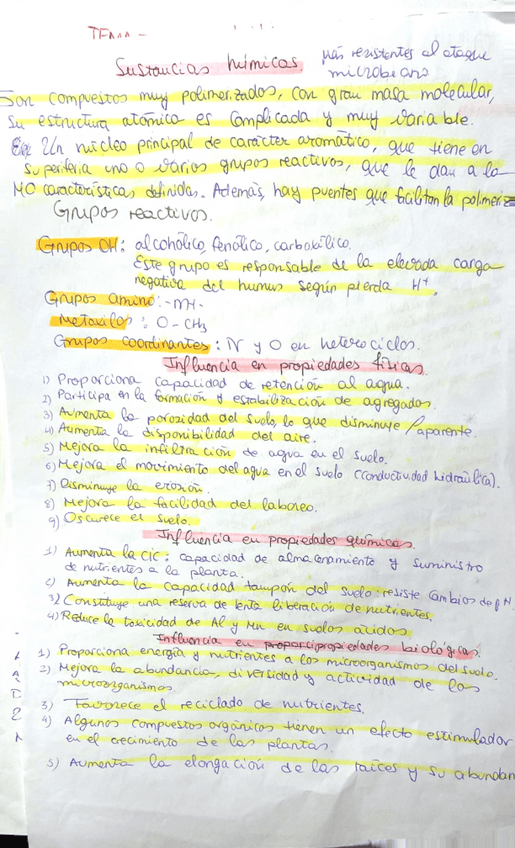 TEMA -
Sustancias húmicas. más resistentes al ataque
microbiano
Son compuestos muy polimerizados, con gran masa molecular,
Su estructura atómica es complicada y muy variable.
Un núcleo principal de carácter aromático, que tiene en
su periferia uno o varios grupos reactivos, que le dan a la
MO características definidas. Además, hay puentes que facilitan la polimeriz
Grupos reactivos.
Grupos OH: alcohólico, fenólico, carboxílico.
Este grupo es responsable de la elevada carga
negativa del humus según pierda H+.
Grupos amino: -NH-
Metoxilos: O-CH3
Grupos coordinantes: N y O en heterociclos.
Influencia en propiedades físicas.
1) Proporciona capacidad de retención al agua.
2) Participa en la formación y estabilización de agregados.
3) Aumenta la porosidad del suelo, lo que disminuye ρaparente.
4) Aumenta la disponibilidad del aire.
5) Mejora la infiltración de agua en el suelo.
6) Mejora el movimiento del agua en el suelo (conductividad hidraúlica).
7) Disminuye la erosión.
8) Mejora la facilidad del laboreo.
9) Oscurece el suelo.
Influencia en propiedades químicas.
1) Aumenta la CIC: capacidad de almacenamiento y suministro
de nutrientes a la planta.
2) Aumenta la capacidad tampón del suelo: resiste cambios de pH.
3) Constituye una reserva de lenta liberación de nutrientes.
4) Reduce la toxicidad de Al y Mn en suelos ácidos.
Influencia en propiedades biológicas.
1) Proporciona energía y nutrientes a los microorganismos del suelo.
2) Mejora la abundancia, diversidad y actividad de los
microorganismos.
3) Favorece el reciclado de nutrientes.
4) Algunos compuestos orgánicos tienen un efecto estimulador
en el crecimiento de las plantas.
5) Aumenta la elongación de las raíces y su abundan